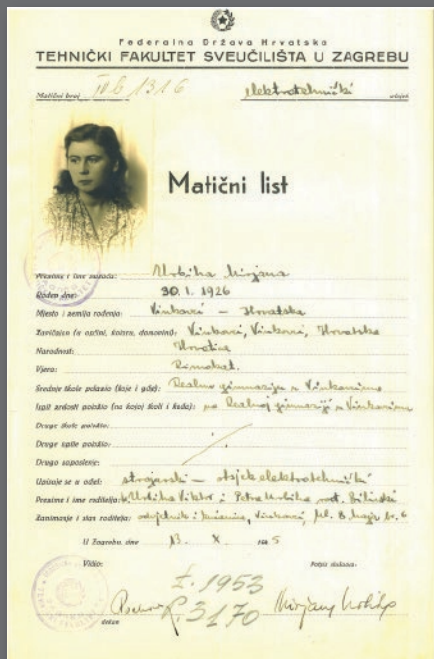 Federalna Država Hrvatska
TEHNIČKI FAKULTET SVEUČILIŠTA U ZAGREBU
Matični broj IVb 1316 elektrotehnički odsjek
Matični list
Prezime i ime slušača: Urbiha Mirjana
Rođen dne: 30. I. 1926
Mjesto i zemlja rođenja: Vinkovci – Hrvatska
Zavičajan (u općini, kotaru, domovini): Vinkovci, Vinkovci, Hrvatska
Narodnost: Hrvatica
Vjera: Rimokat.
Srednje škole polazio (koje i gdje): Realnu gimnaziju u Vinkovcima
Ispit zrelosti položio (na kojoj školi i kada): na Realnoj gimnaziji u Vinkovcima
Druge škole polazio:
Druge ispite položio:
Drugo zaposlenje:
Upisuje se u odjel: strojarski – odsjek elektrotehnički
Prezime i ime roditelja: Urbiha Viktor i Petra Urbiha
Zanimanje i stan roditelja: odvjetnik i kućanica, Vinkovci, br. 6
U Zagrebu, dne 13. X. 1945
Vidio: Potpis slušača:
I. 1953
R. 3170
Mirjana Urbiha
dekan